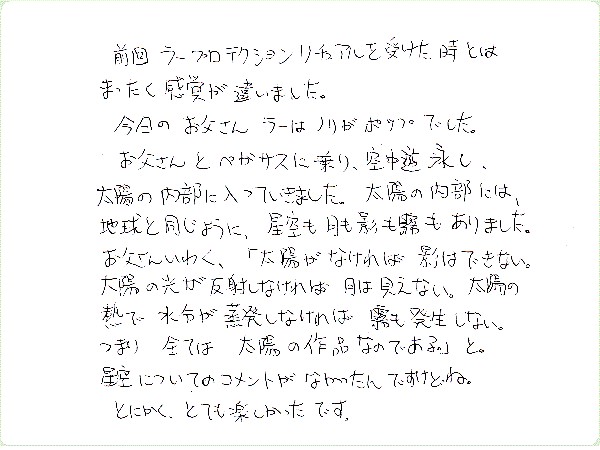 前回 ラープロテクションリチュアルを受けた時とは
まったく感覚が違いました。
今回のお父さん ラーは ノリがポップでした。
お父さんとペガサスに乗り、空中遊泳し、
太陽の内部に入っていきました。太陽の内部には、
地球と同じように、星空も月も影も霧もありました。
お父さんいわく、「太陽がなければ 影はできない。
太陽の光が反射しなければ 月は見えない。太陽の
熱で 水分が蒸発しなければ 霧も発生しない。
つまり 全ては 太陽の作品なのである。」と。
星空についてのコメントが なかったんですけどね。
とにかく、とても楽しかったです。